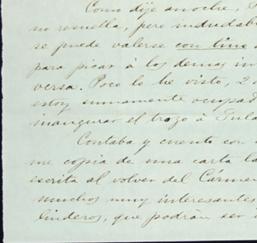 Como dije anoche,
no resuelta, pero indudabl
se puede valerse con tino
para picar á los demas in
versa. Poco lo he visto, 2 ó
estoy sumamente ocupad
inaugurar el trazo á
Contaba y cuento con
me copia de una carta la
escrita al volver del Cármen
muchos muy interesantes
linderos, que podrán ser